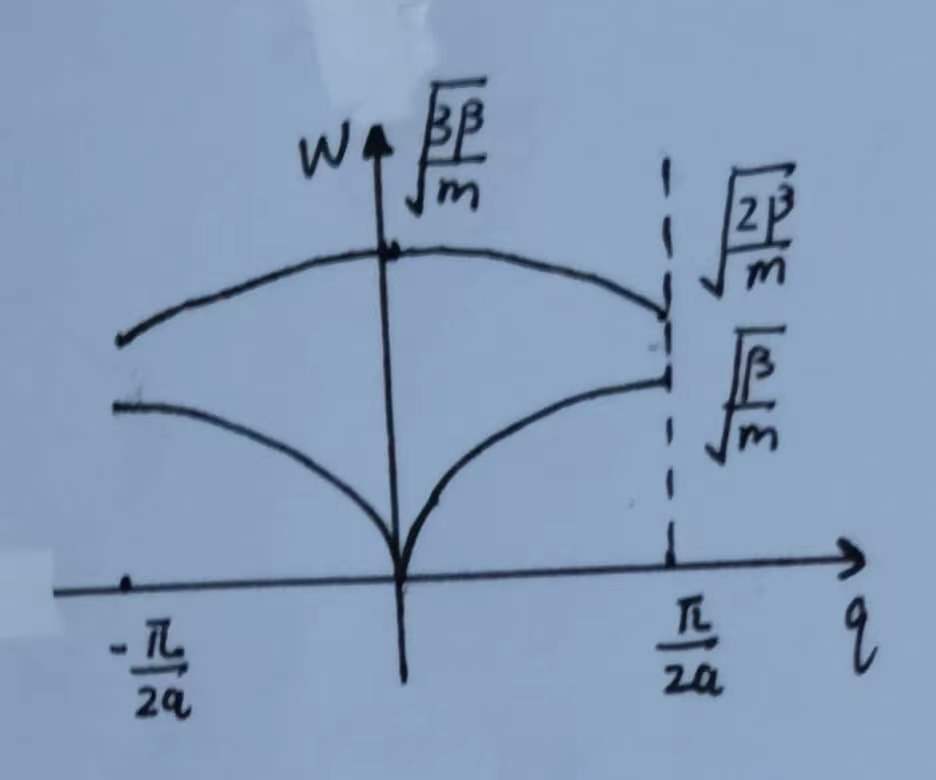 W √(3β/m)
√(2β/m)
√(β/m)
-π/2a
π/2a
q